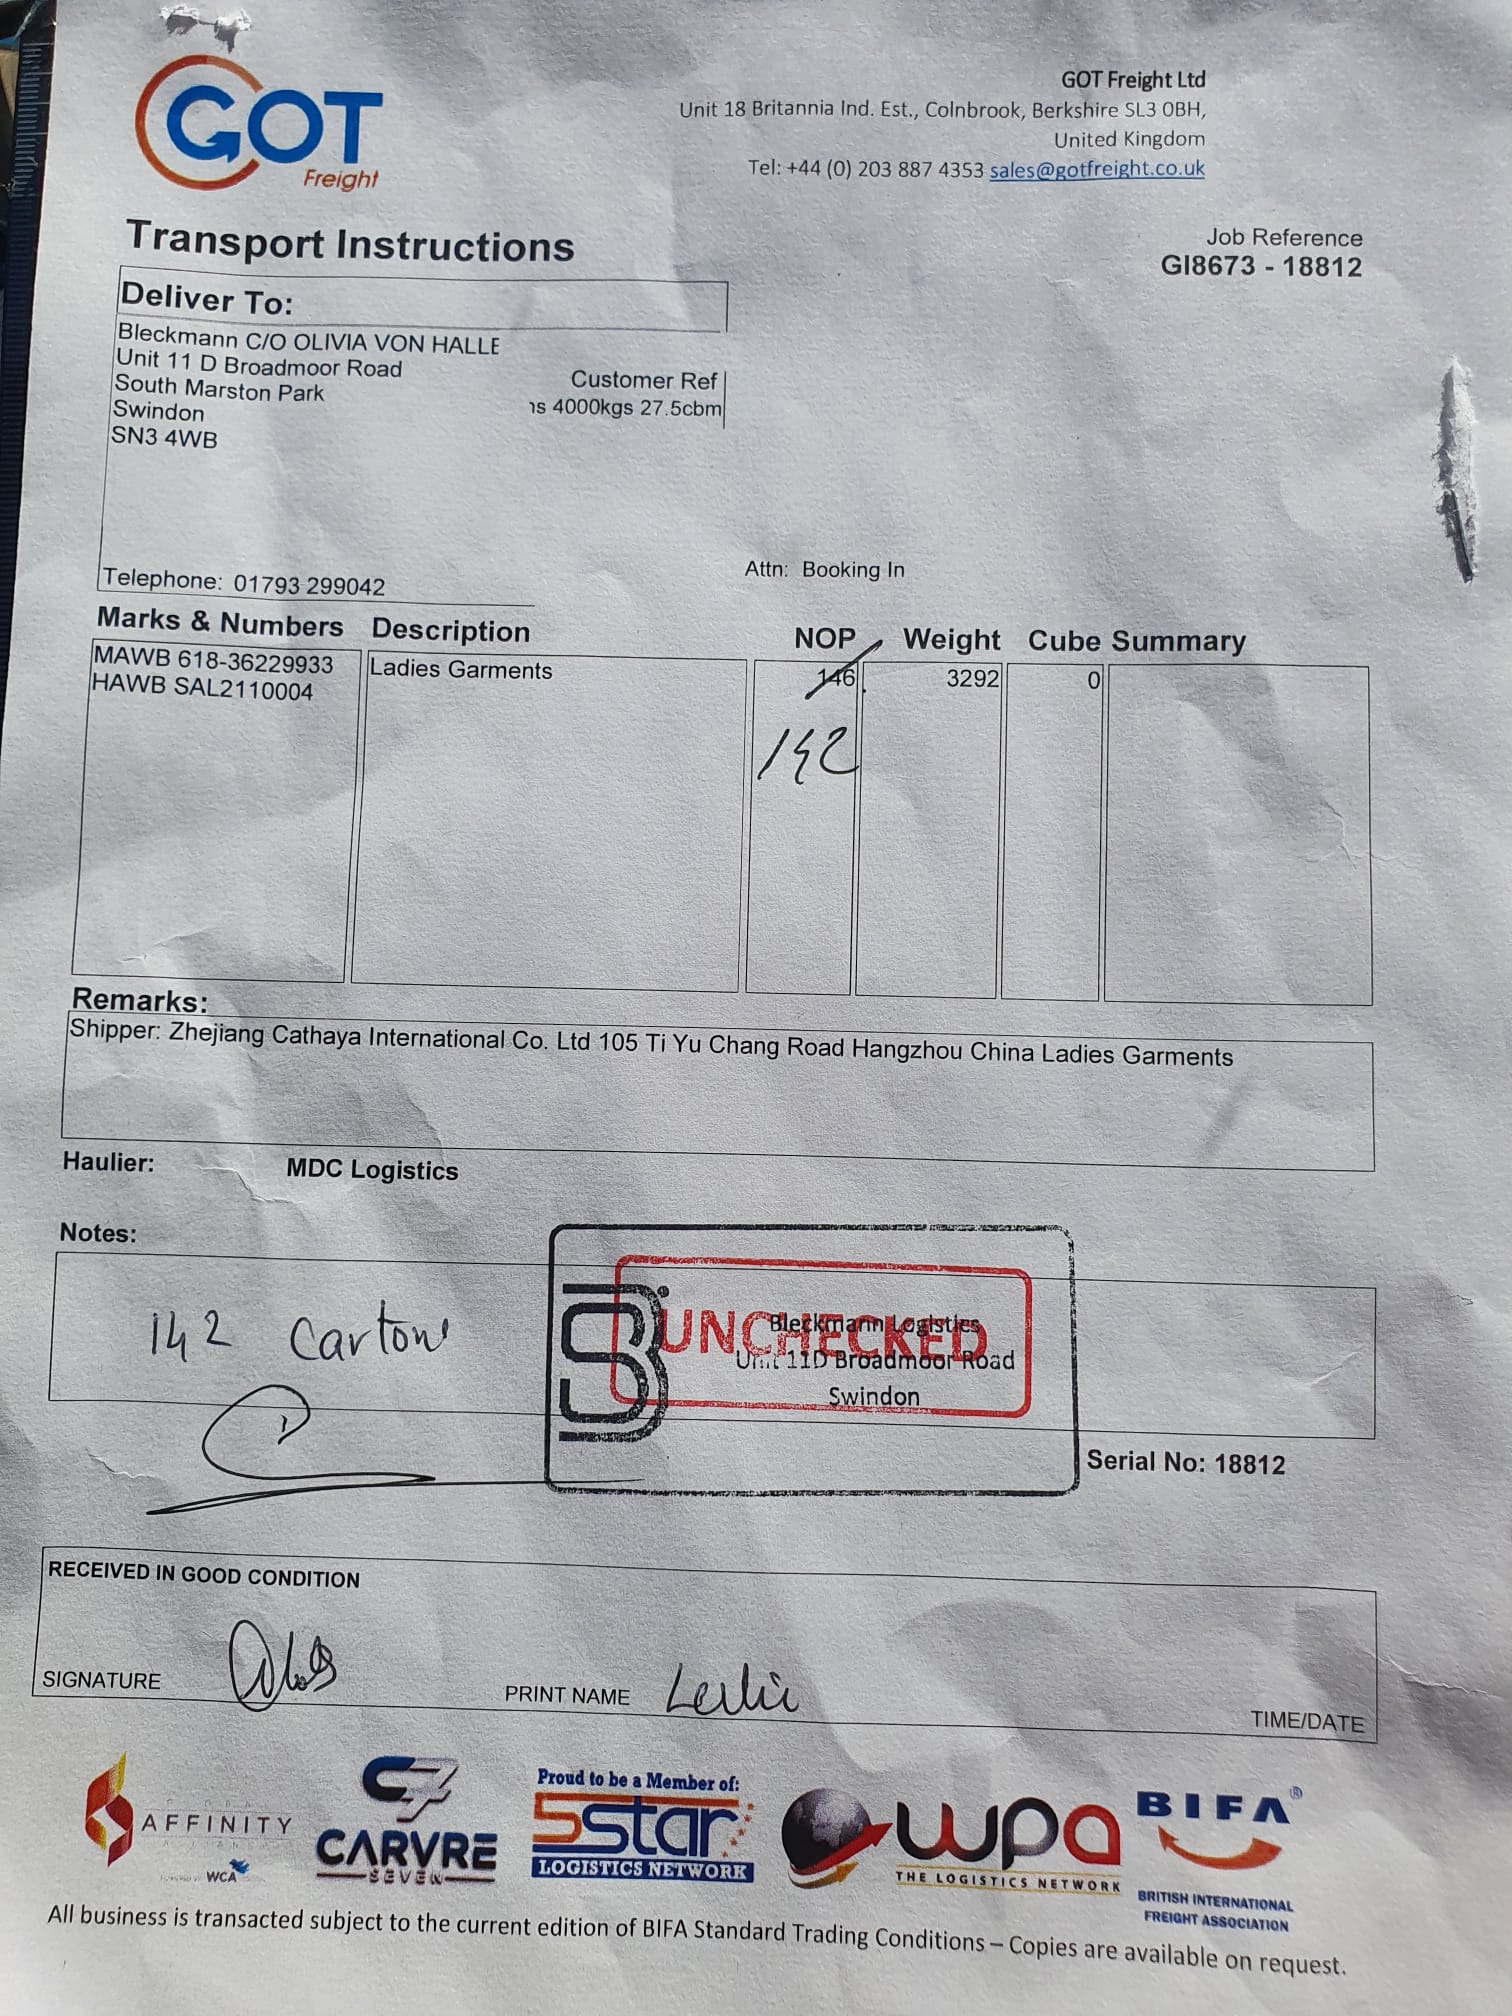 GOT
Freight
GOT Freight Ltd
Unit 18 Britannia Ind. Est., Colnbrook, Berkshire SL3 0BH,
United Kingdom
Tel: +44 (0) 203 887 4353 sales@gotfreight.co.uk
Transport Instructions
Job Reference
GI8673 - 18812
Deliver To:
Bleckmann C/O OLIVIA VON HALLE
Unit 11 D Broadmoor Road
South Marston Park
Swindon
SN3 4WB
Customer Ref
4000kgs 27.5cbm
Telephone: 01793 299042
Attn: Booking In
Marks & Numbers Description NOP Weight Cube Summary
MAWB 618-36229933 Ladies Garments 146 3292 0
HAWB SAL2110004
142
Remarks:
Shipper: Zhejiang Cathaya International Co. Ltd 105 Ti Yu Chang Road Hangzhou China Ladies Garments
Haulier: MDC Logistics
Notes:
142 Cartons
UNCHECKED
Bleckmann Logistics
Unit 11D Broadmoor Road
Swindon
Serial No: 18812
RECEIVED IN GOOD CONDITION
SIGNATURE
PRINT NAME Leslie
TIME/DATE
AFFINITY
WCA
C7
CARVRE
SEVEN
Proud to be a Member of:
5star
LOGISTICS NETWORK
wpa
THE LOGISTICS NETWORK
BIFA®
BRITISH INTERNATIONAL
FREIGHT ASSOCIATION
All business is transacted subject to the current edition of BIFA Standard Trading Conditions – Copies are available on request.